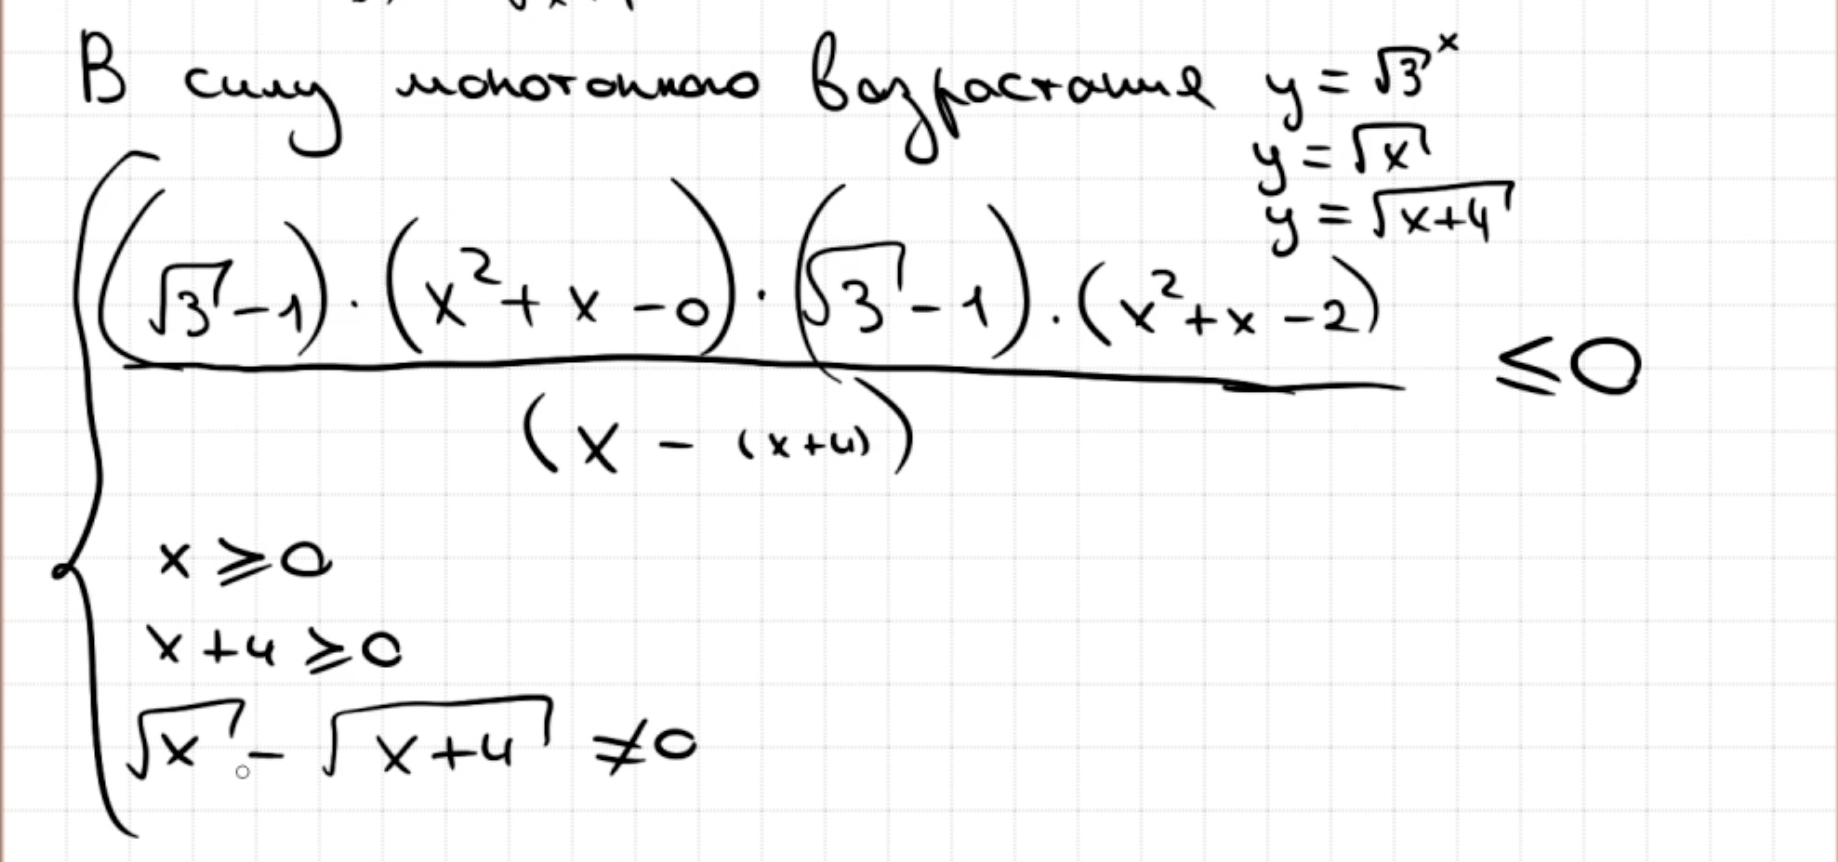 В силу монотонного возрастание y = √3^x
y = √x
y = √(x+4)
((√3 - 1) · (x² + x - 0)) · ((√3 - 1) · (x² + x - 2)) / (x - (x+4)) ≤ 0
x ≥ 0
x + 4 ≥ 0
√x - √(x+4) ≠ 0